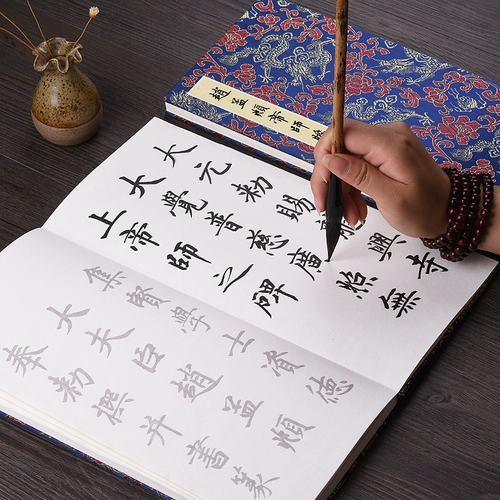 趙孟頫帝師
大元勅賜興寺
大覺普慈廣照無
上帝師之碑
集賢學士資德
大夫臣趙孟頫
奉勅撰并書篆